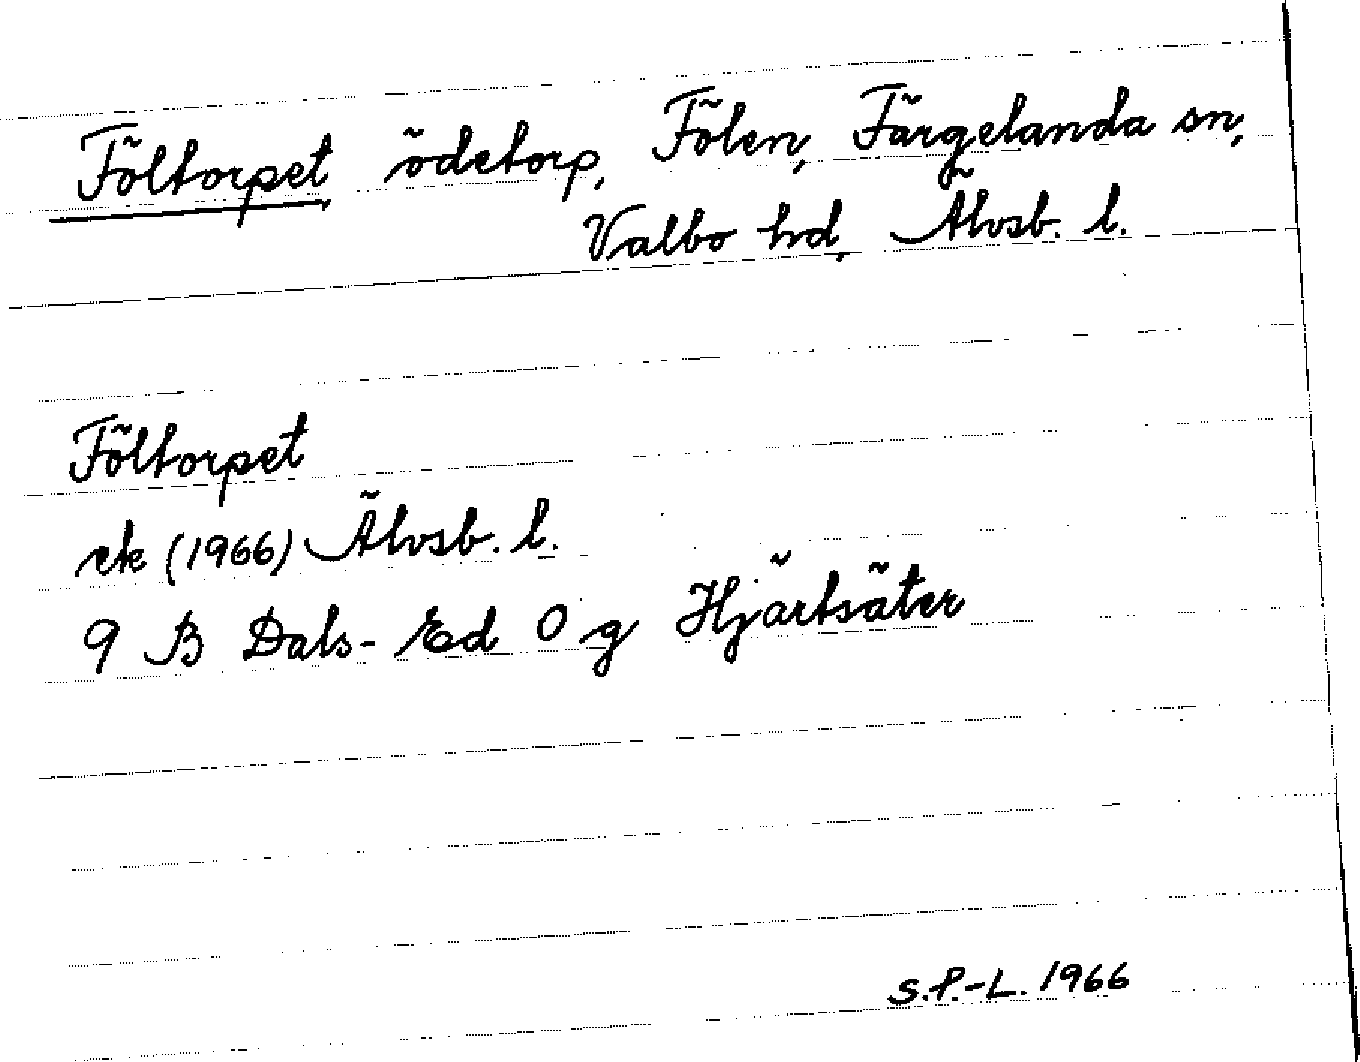 Föltorpet ödetorp, Fölen, Färgelanda sn,
Valbo hd, Älvsb. l.
Föltorpet
ek (1966) Älvsb. l.
9 B Dals-Ed 0 g Hjärtsäter
S.P.-L. 1966